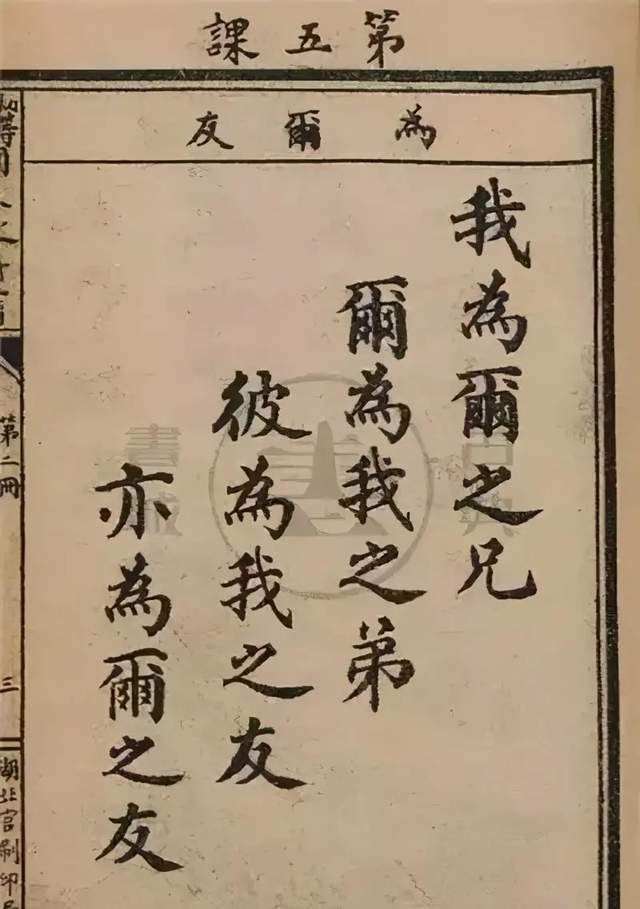 第五課
為爾友
我為爾之兄
爾為我之弟
彼為我之友
亦為爾之友
第二冊
三
湖北官刷印局
古典
書城